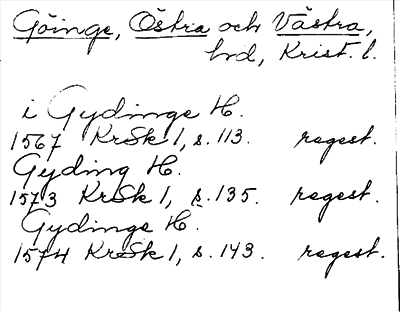 Göinge, Östra och Västra,
hd, Krist. l.
i Gydinge H.
1567 KrSk 1, s. 113. regest.
Gyding H.
1573 KrSk 1, s. 135. regest.
Gydinge H.
1574 KrSk 1, s. 143. regest.